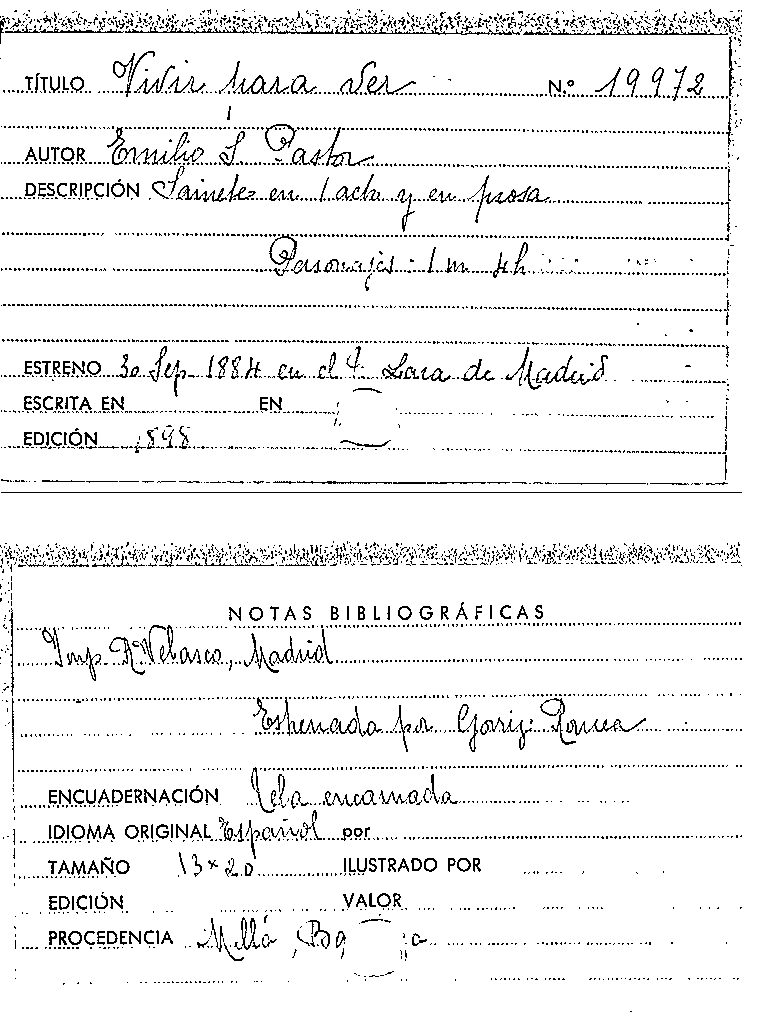 TÍTULO Vivir para ver N.º 19972
AUTOR Emilio S. Pastor
DESCRIPCIÓN Sainete en 1 acto y en prosa
Personajes: 1 m 4h
ESTRENO 30 Sep. 1884 en el T. Lara de Madrid
ESCRITA EN EN
EDICIÓN 1898
NOTAS BIBLIOGRÁFICAS
Imp. R. Velasco, Madrid
Estrenada por
ENCUADERNACIÓN Tela encarnada
IDIOMA ORIGINAL Español por
TAMAÑO 13 x 20 ILUSTRADO POR
EDICIÓN VALOR
PROCEDENCIA Millá,